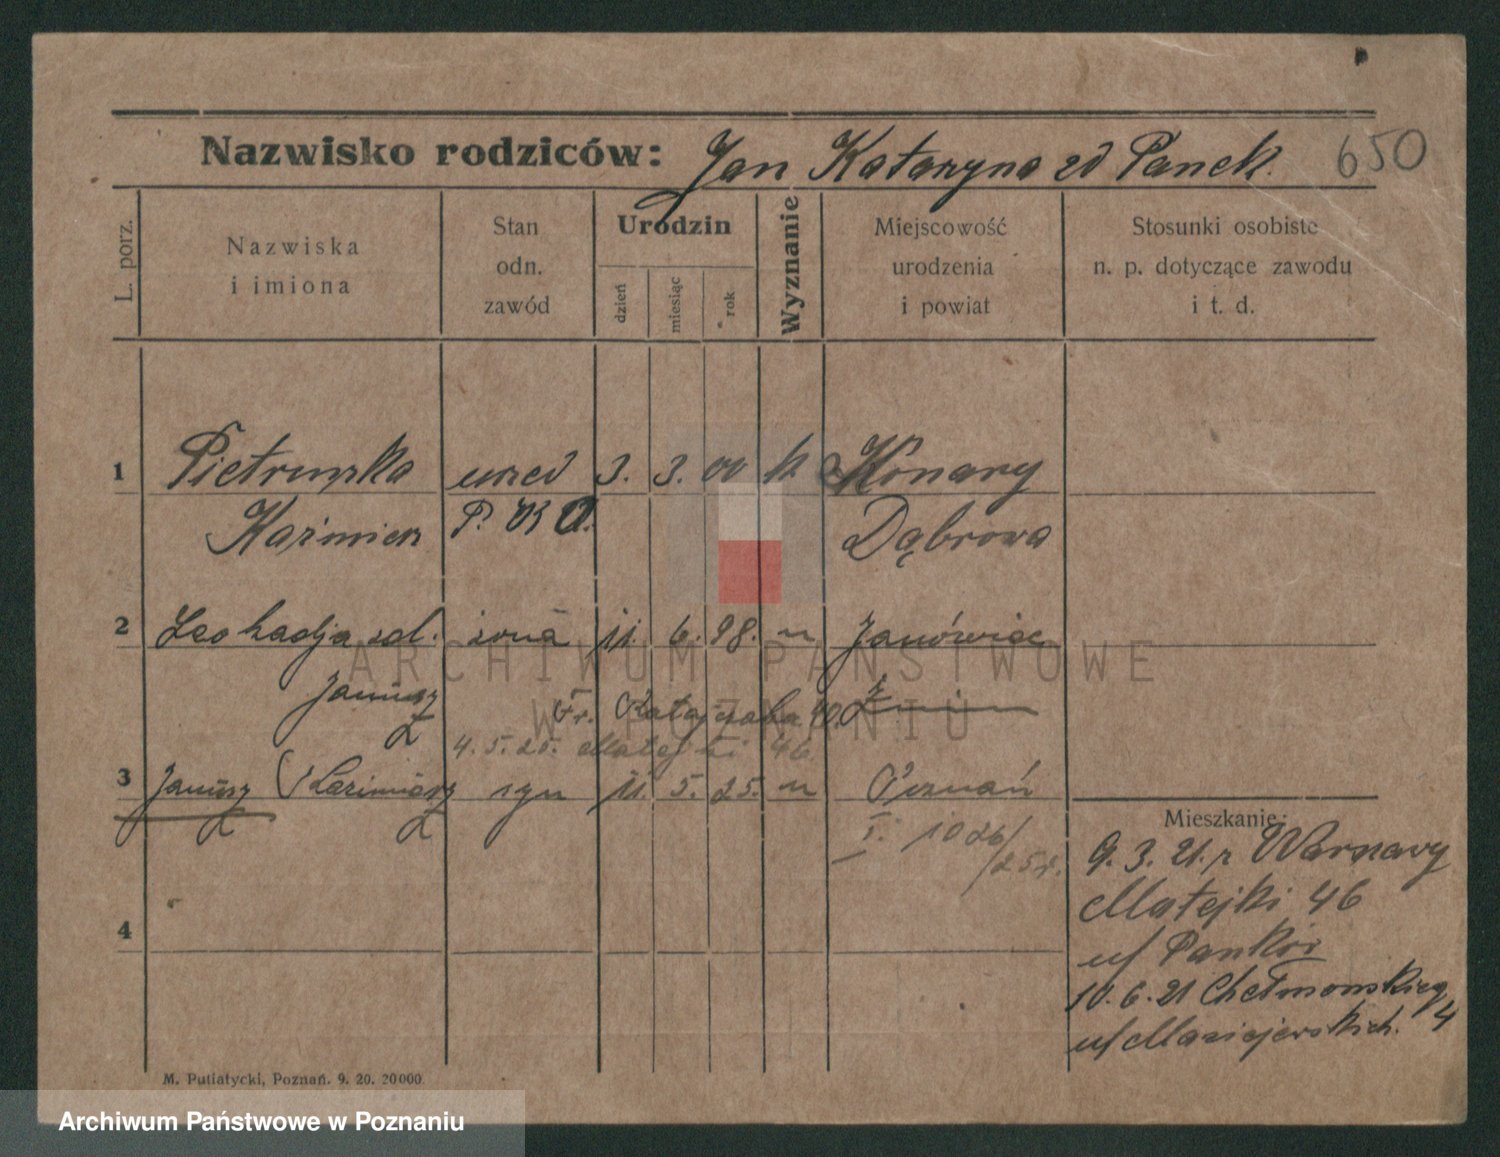 Nazwisko rodziców: Jan Katarzyna zd Panek. 650
L. porz.
Nazwiska
i imiona
Stan
odn.
zawód
Urodzin
dzień
miesiąc
rok
Wyznanie
Miejscowość
urodzenia
i powiat
Stosunki osobiste
n. p. dotyczące zawodu
i t. d.
1 Pietruszka urzed 3. 3. 00 k. Konary
Kazimierz P. K O. Dąbrowa
2 Leokadja zd. żona 11. 6. 98. " Janówiec
Janusz Fr. Ratajczaka 40. Żnin
4. 5. 25. Matejki 46
3 Janusz Kazimierz syn 11. 5. 25. " Poznań
I. 1026/25 r.
4
Mieszkanie:
9. 3. 21. z Warszawy
Matejki 46
u/ Pankór
10. 6. 21 Chełmońskieg 4
u/ Maciejewskich.
M. Putiatycki, Poznań. 9. 20. 20000
ARCHIWUM PAŃSTWOWE
W POZNANIU
Archiwum Państwowe w Poznaniu